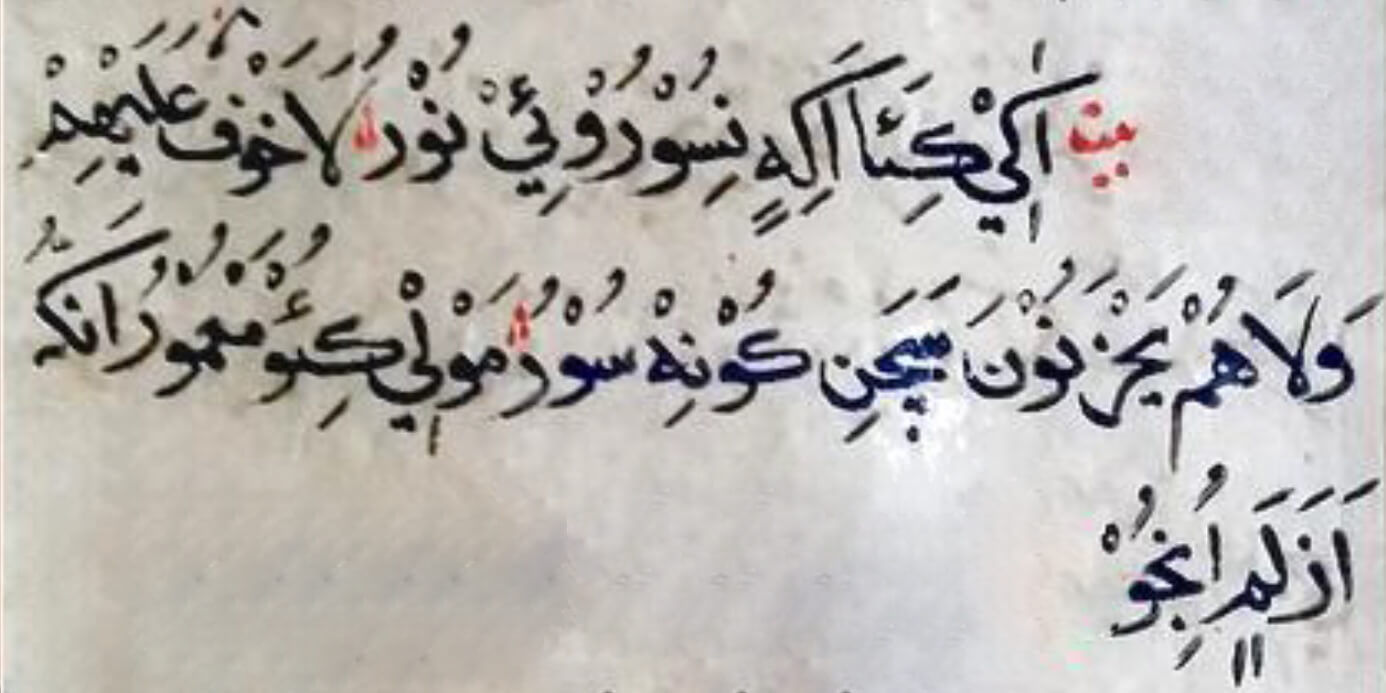 بيت اَكِيْ كِئَا اَكِهٍ نِسُوْرُوْئِيْ نُوْرُ لَا خَوْفٌ عَلَيْهِمْ
وَلَا هُمْ يَحْزَنُوْنَ سَچَنِ كُوْنِهْ سُوْرُ مَوْلٰيْ كِئَوُ مَعْمُوْرُ انكُ
اَزَلَ مٖ اُنِجُوْ